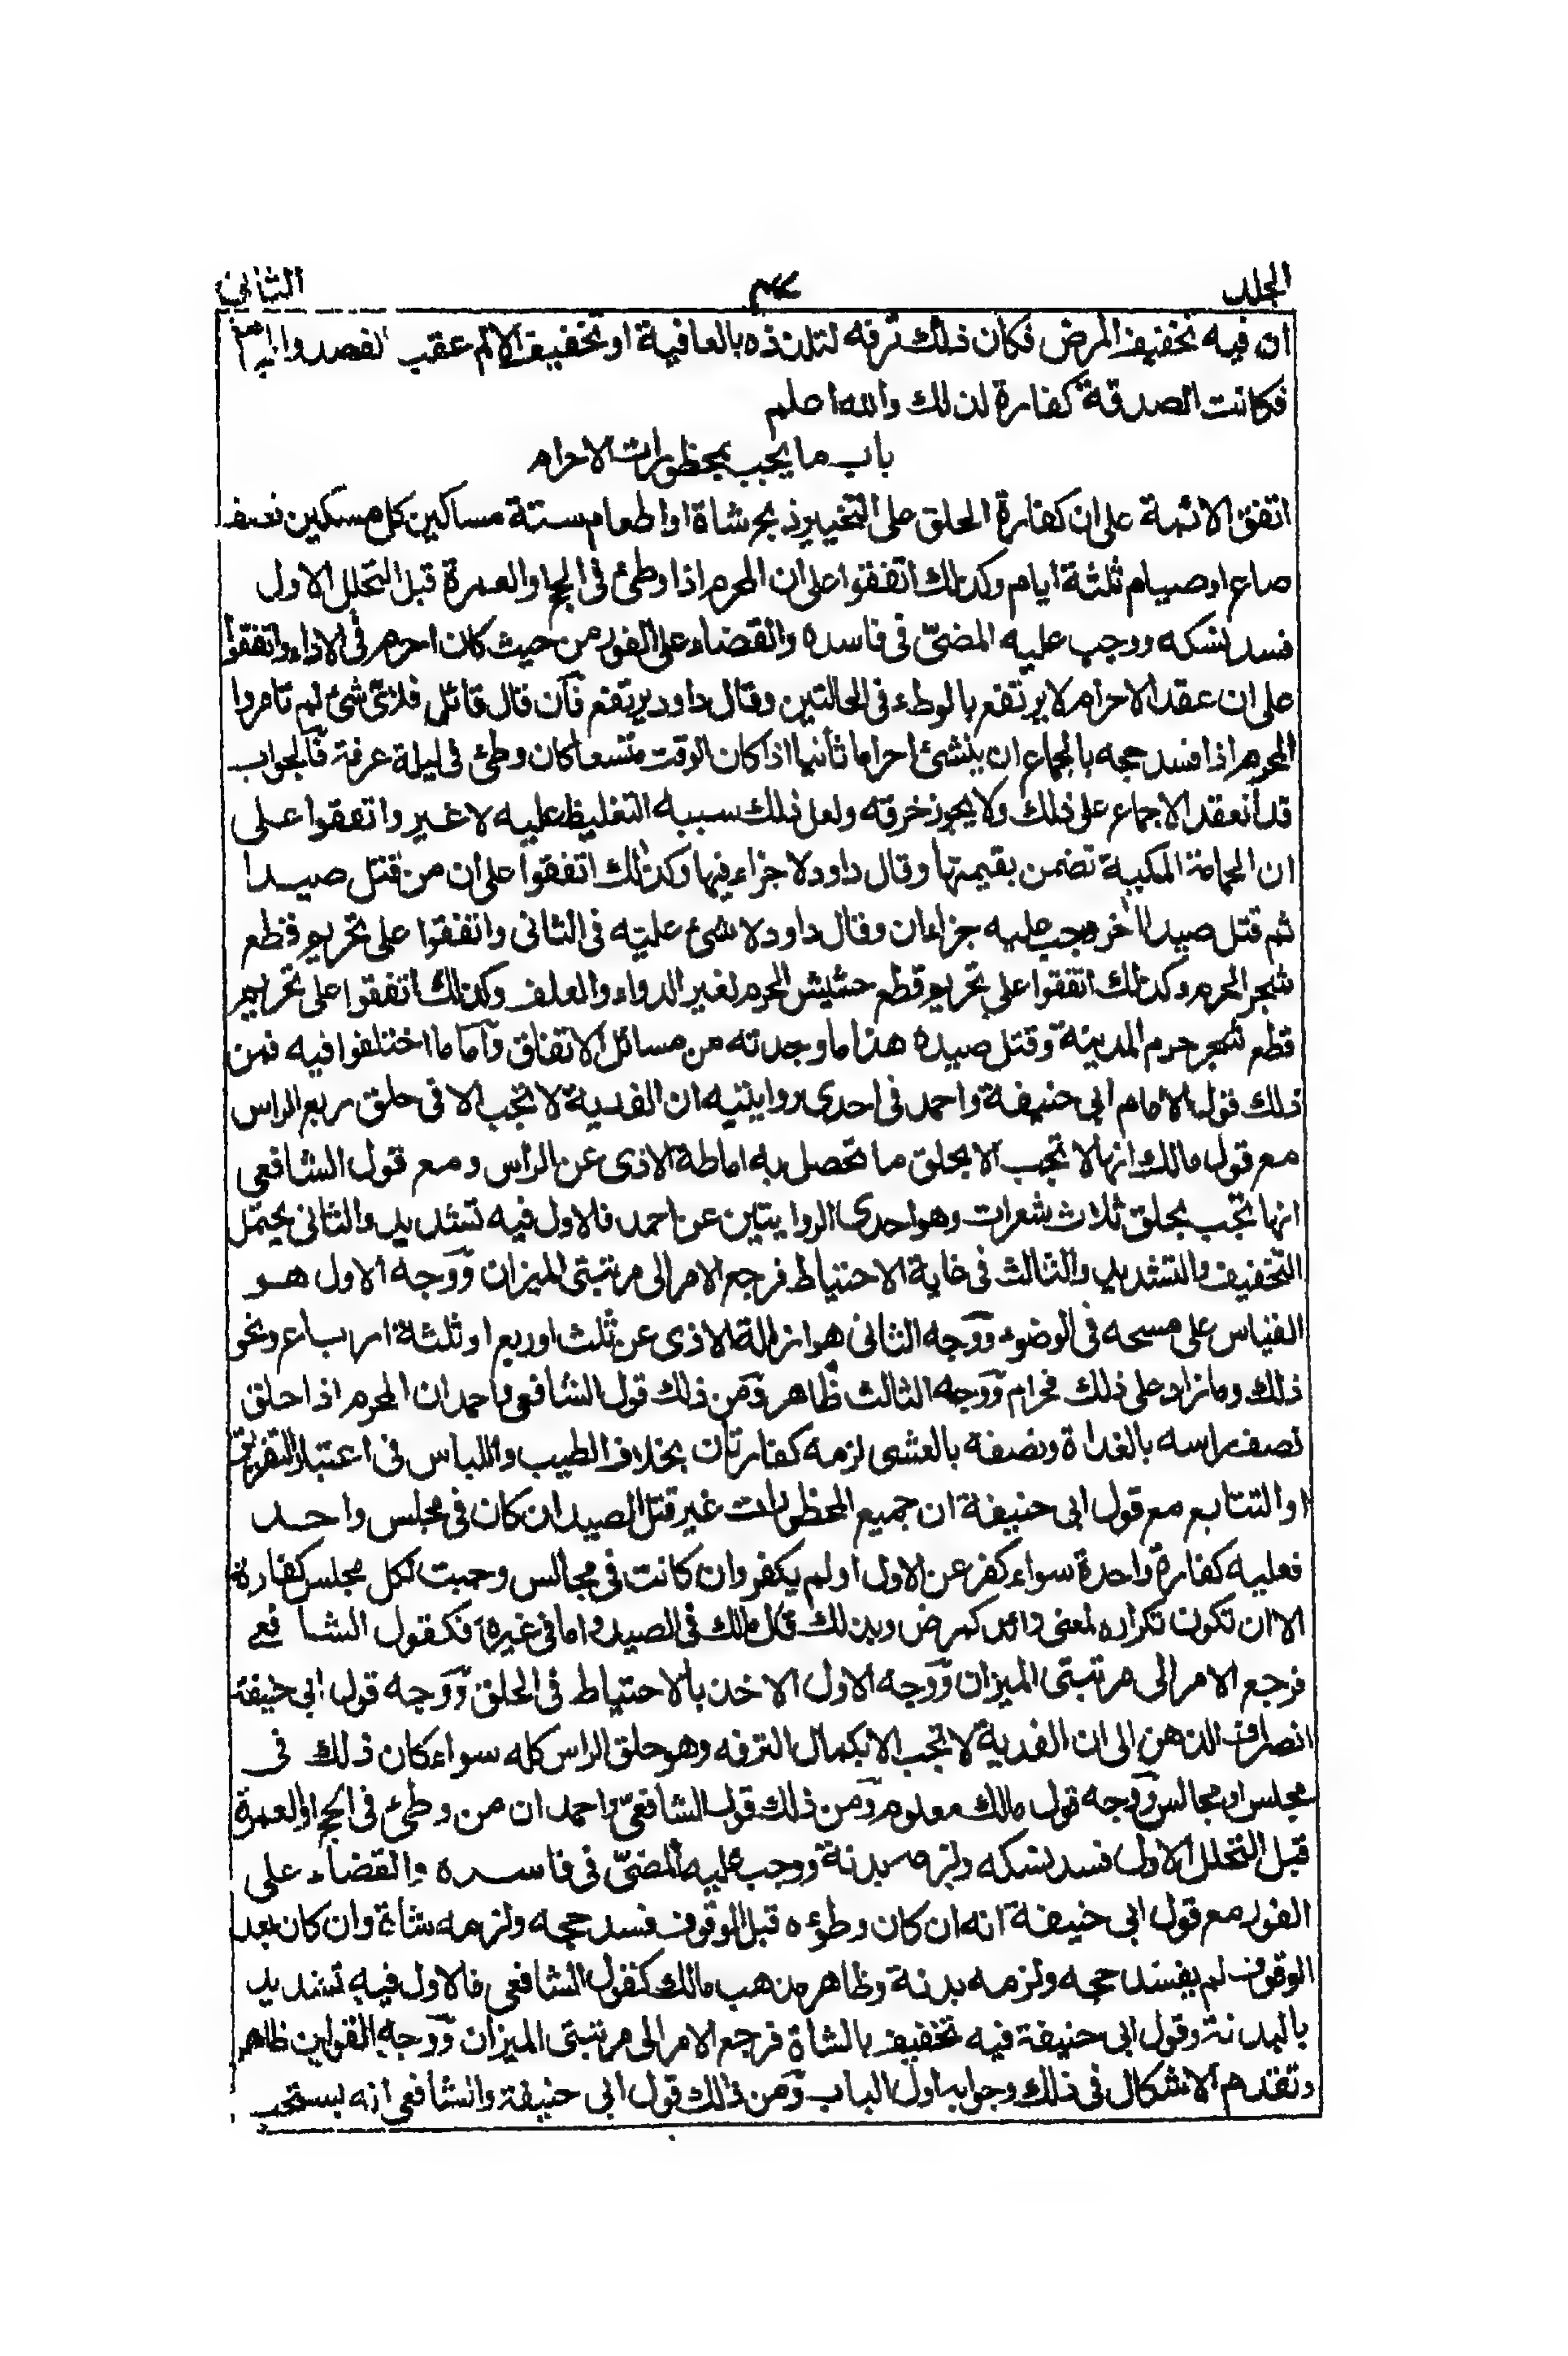 الجلد الثانى
ان فيه تخفيف المرض فكان ذلك ترفه لتلذذه بالعافية او تخفيف الالم عقب الفصد والحجامة
فكانت الصدقة كفارة لذلك والله اعلم
باب ما يجب بمحظورات الاحرام
اتفق الائمة على ان كفارة الحلق على التخيير ذبح شاة او اطعام ستة مساكين كل مسكين نصف
صاع او صيام ثلثة ايام وكذلك اتفقوا على ان المحرم اذا وطئ فى الحج او العمرة قبل التحلل الاول
فسد نسكه ووجب عليه المضىّ فى فاسده والقضاء على الفور من حيث كان احرم فى الاداء واتفقوا
على ان عقد الاحرام لا يرتفع بالوطء فى الحالتين وقال داود يرتفع فآن قال قائل فلاىّ شئ لم تامروا
المحرم اذا فسد حجه بالجماع ان ينشئ احراما ثانيا اذا كان الوقت متسعا كان وطئ فى ليلة عرفة فآلجواب
قد انعقد الاجماع على ذلك ولا يجوز خرقه ولعل ذلك سببه التغليظ عليه لا غير واتفقوا على
ان الحمامة المكية تضمن بقيمتها وقال داود لا جزاء فيها وكذلك اتفقوا على ان من قتل صيدا
ثم قتل صيدا اخر وجب عليه جزاءان وقال داود لا شئ عليه فى الثانى واتفقوا على تحريم قطع
شجر الحرم وكذلك اتفقوا على تحريم قطع حشيش الحرم لغير الدواء والعلف وكذلك اتفقوا على تحريم
قطع شجر حرم المدينة وقتل صيده هذا ما وجدته من مسائل الاتفاق وآما ما اختلفوا فيه فمن
ذلك قول الامام ابى حنيفة واحمد فى احدى روايتيه ان الفدية لا تجب الا فى حلق ربع الراس
مع قول مالك انها لا تجب الا بحلق ما تحصل به اماطة الاذى عن الراس ومع قول الشافعى
انها تجب بحلق ثلاث شعرات وهو احدى الروايتين عن احمد فالاول فيه تشديد والثانى يحتمل
التخفيف والتشديد والثالث فى غاية الاحتياط فرجع الامر الى مرتبتى الميزان وَوجه الاول هو
القياس على مسحه فى الوضوء وَوجه الثانى هو ازالة الاذى عن ثلث او ربع او ثلثة ارباع ونحو
ذلك وما زاد على ذلك فحرام وَوجه الثالث ظاهر وَمن ذلك قول الشافعى واحمد ان المحرم اذا حلق
نصف راسه بالغداة ونصفه بالعشى لزمه كفارتان بخلاف الطيب واللباس فى اعتبار التفريق
او التتابع مع قول ابى حنيفة ان جميع المحظورات غير قتل الصيد ان كان فى مجلس واحد
فعليه كفارة واحدة سواء كفر عن الاول او لم يكفر وان كانت فى مجالس وجبت لكل مجلس كفارة
الا ان تكون تكراره لمعنى زائد كمرض وبذلك قال مالك فى الصيد واما فى غيره فكقول الشافعى
فرجع الامر الى مرتبتى الميزان وَوجه الاول الاخذ بالاحتياط فى الحلق وَوجه قول ابى حنيفة
انصراف الذهن الى ان الفدية لا تجب الا بكمال الترفه وهو حلق الراس كله سواء كان ذلك فى
مجلس او مجالس وَوجه قول مالك معلوم وَمن ذلك قول الشافعىّ واحمد ان من وطئ فى الحج او العمرة
قبل التحلل الاول فسد نسكه ولزمه بدنة ووجب عليه المضىّ فى فاسده والقضاء على
الفور مع قول ابى حنيفة انه ان كان وطؤه قبل الوقوف فسد حجه ولزمه شاة وان كان بعد
الوقوف لم يفسد حجه ولزمه بدنة وظاهر مذهب مالك كقول الشافعى فالاول فيه تشديد
بالبدنة وقول ابى حنيفة فيه تخفيف بالشاة فرجع الامر الى مرتبتى الميزان وَوجه القولين ظاهر
وتقدم الاشكال فى ذلك وجوابه اول الباب وَمن ذلك قول ابى حنيفة والشافعى انه يستحب